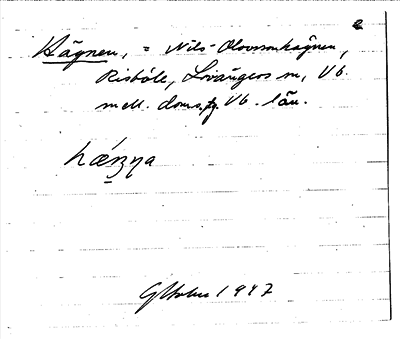 e
Hägnen, = Nils-Olovsonhägnen,
Risböle, Lövångers sn, Vb.
mell. doms.g. Vb. län.
1947